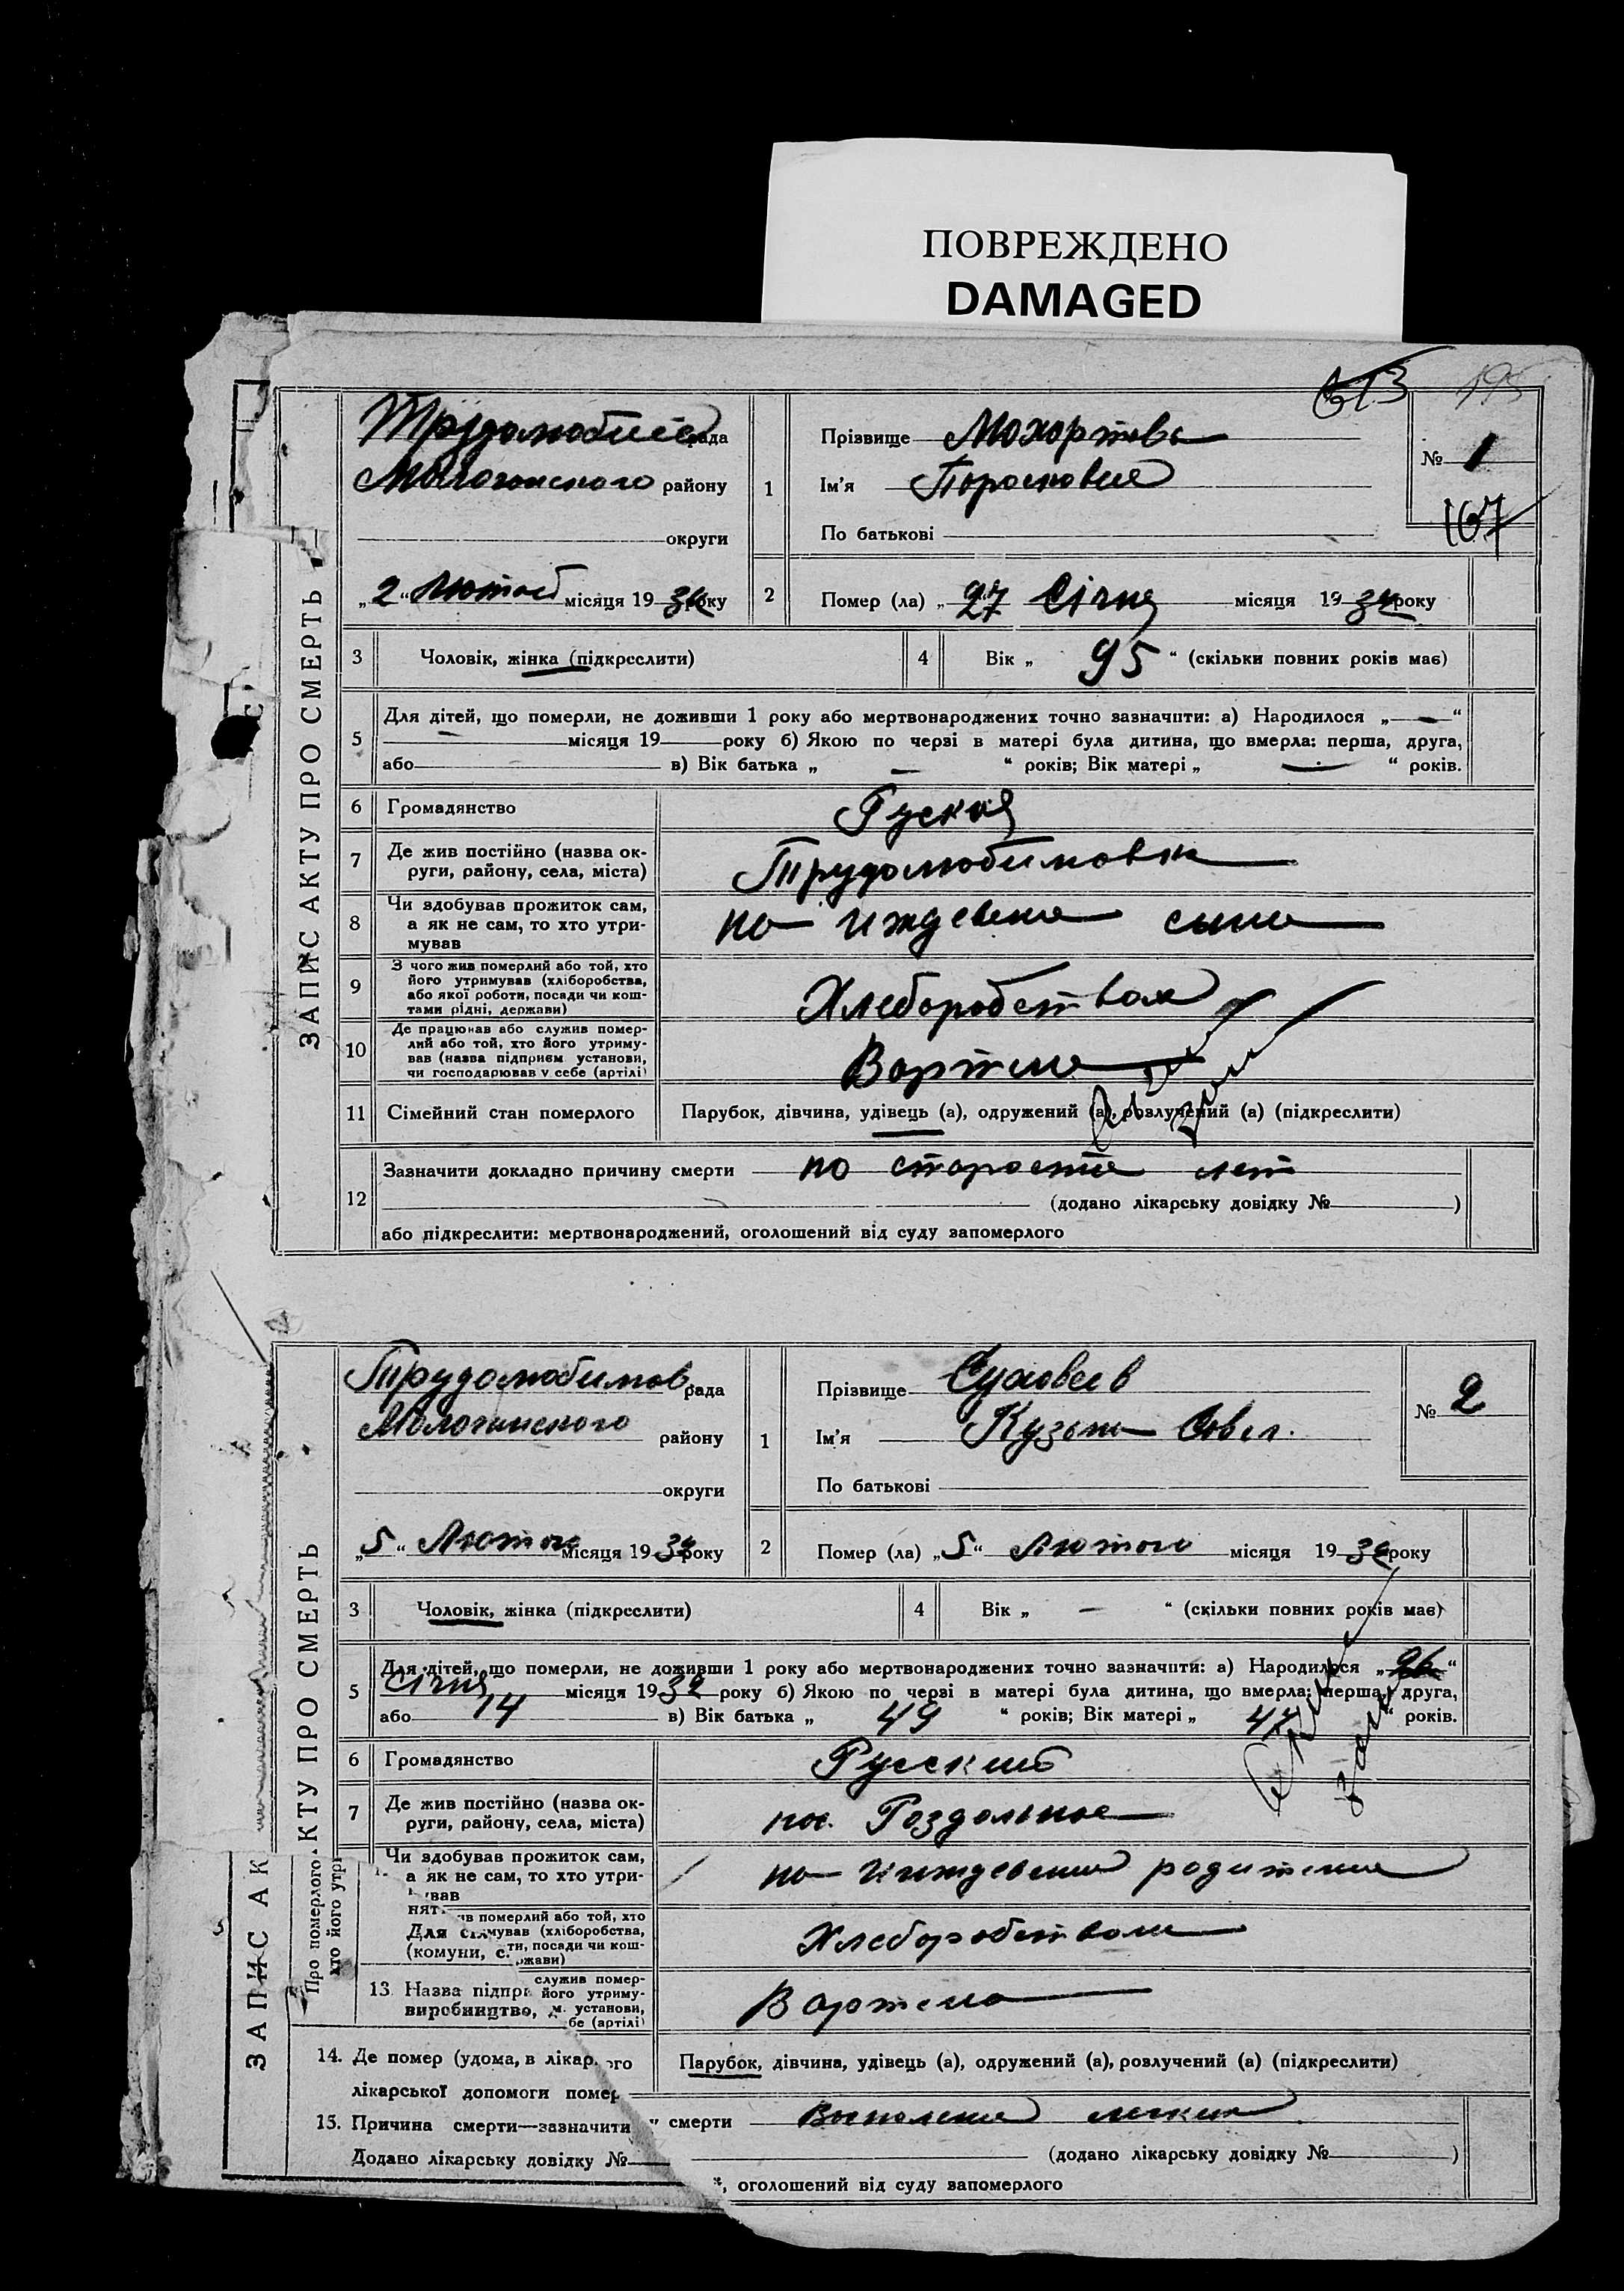 ПОВРЕЖДЕНО
DAMAGED
613 195
ЗАПИС АКТУ ПРО СМЕРТЬ
рада
района
округи
„2“ місяця 19 року
1
Прізвище Мохортова
Ім'я
По батькові
№ 1
167
2
Помер (ла) „27 Січня місяця 19 року
3 Чоловік, жінка (підкреслити)
4 Вік „ 95 “ (скільки повних років має)
5 Для дітей, що померли, не доживши 1 року або мертвонароджених точно зазначити: а) Народилося „—“
місяця 19 року б) Якою по черзі в матері була дитина, що вмерла: перша, друга,
або — в) Вік батька „ — “ років; Вік матері „ — “ років.
6 Громадянство Руская
7 Де жив постійно (назва ок-
руги, району, села, міста) Трудолюбимовка
8 Чи здобував прожиток сам,
а як не сам, то хто утри-
мував на иждевение сына
9 З чого жив померлий або той, хто
його утримував (хліборобства,
або якої роботи, посади чи кош-
тами рідні, держави) Хлеборобством
10 Де працював або служив помер-
лий або той, хто його утриму-
вав (назва підприєм установи,
чи господарював у себе (артілі)
11 Сімейний стан померлого Парубок, дівчина, удівець (а), одружений (а), розлучений (а) (підкреслити)
12 Зазначити докладно причину смерти по старости лет
(додано лікарську довідку № )
або підкреслити: мертвонароджений, оголошений від суду запомерлого
КТУ ПРО СМЕРТЬ
Трудолюбимов рада
району
округи
„5“ Лютого місяця 19 року
1
Прізвище Суховеев
Ім'я Кузьма
По батькові
№ 2
2
Помер (ла) „5“ Лютого місяця 19 року
3 Чоловік, жінка (підкреслити)
4 Вік „ — “ (скільки повних років має)
5 Для дітей, що померли, не доживши 1 року або мертвонароджених точно зазначити: а) Народилося „26“
Січня місяця 1932 року б) Якою по черзі в матері була дитина, що вмерла: перша, друга,
або 14 в) Вік батька „ 49 “ років; Вік матері „ 47 “ років.
6 Громадянство Русский
7 Де жив постійно (назва ок-
руги, району, села, міста) пос. Роздольное
Чи здобував прожиток сам,
а як не сам, то хто утри-
вав на иждевении родители
ив померлий або той, хто
мував (хліборобства,
ти, посади чи кош-
ржави) Хлеборобством
служив помер-
його утриму-
м. установи,
бе (артілі)
Парубок, дівчина, удівець (а), одружений (а), розлучений (а) (підкреслити)
смерти Воспаление легких
(додано лікарську довідку № )
, оголошений від суду запомерлого
ЗАПИС АК
Про померлого
хто його утри
нят
Для
(комуни, с.
13. Назва підпр
виробництво,
14. Де помер (удома, в лікар
лікарської допомоги помер
15. Причина смерти—зазначити
Додано лікарську довідку №